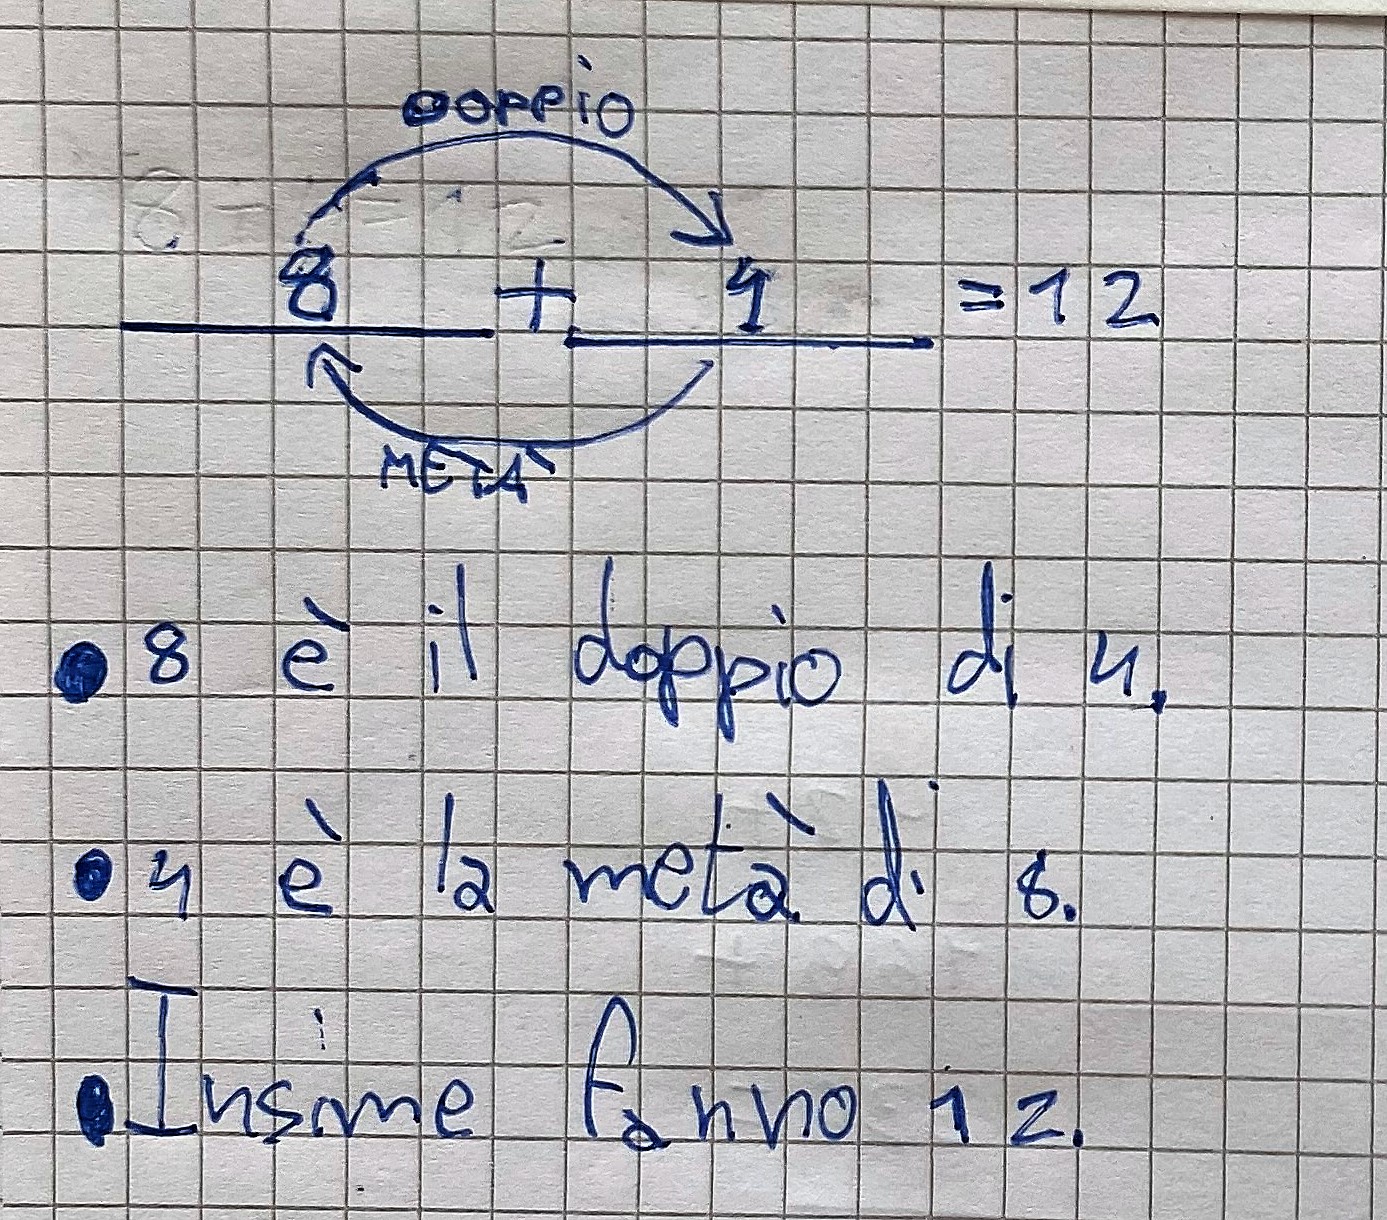 DOPPIO
8 + 4 = 12
METÀ
• 8 è il doppio di 4.
• 4 è la metà di 8.
• Insime fanno 12.